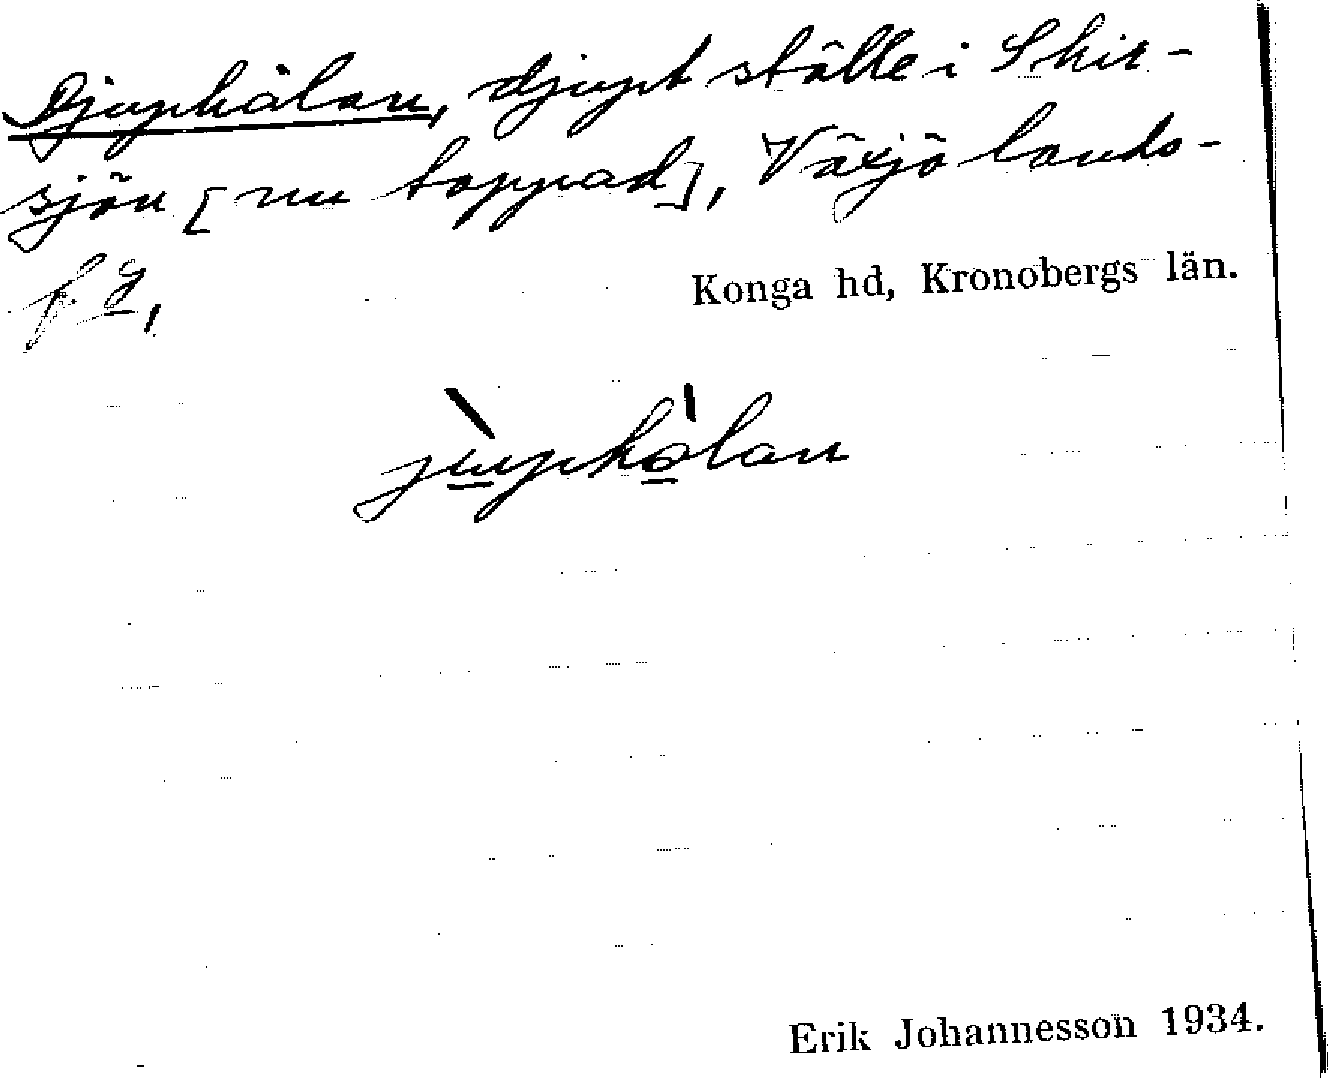 Djuphålan, djupt ställe i Skir-
sjön [nu tappad], Växjö lands-
f g,
Konga hd, Kronobergs län.
juphålan
Erik Johannesson 1934.